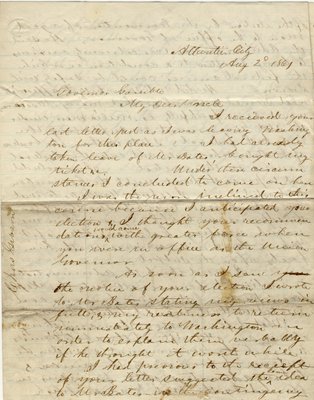 Atlantic City
Aug 2d 1861
Governor Gamble
My Dear Uncle
I recieved your
last letter just as I was leaving Washing
ton for this place I had already
taken leave of Mr Bates, bought my
ticket &c. Under the circum
stances I concluded to come on here
I was the more inclined to this
course because I anticipated your
election & I thought your recommen
dations would come with greater force when
you were in office as the Union
Governor
As soon as I saw
the notice of your election I wrote
to Mr Bates stating my views in
full, & my readiness to return
immediately to Washington in
order to explain them verbally
if he thought it worth while.
I had previous to the receipt
of your letter suggested the idea
to Mr Bates in the contingency